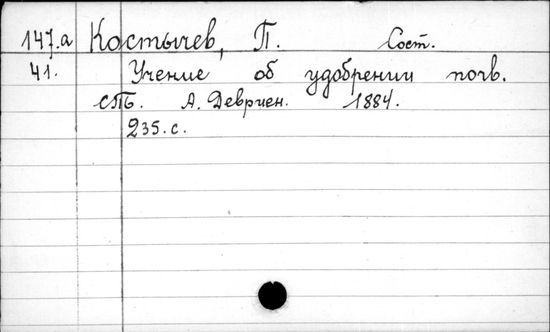 147.а Костычев, П. Сост.
41. Учение об удобрении почв.
СПБ. А. Девриен. 1884.
235.с.